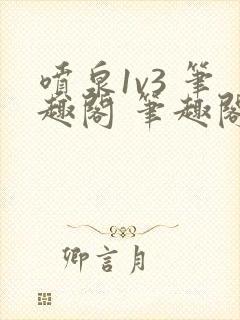 噴泉1v3 筆
趣閣 筆趣閣
卿言月